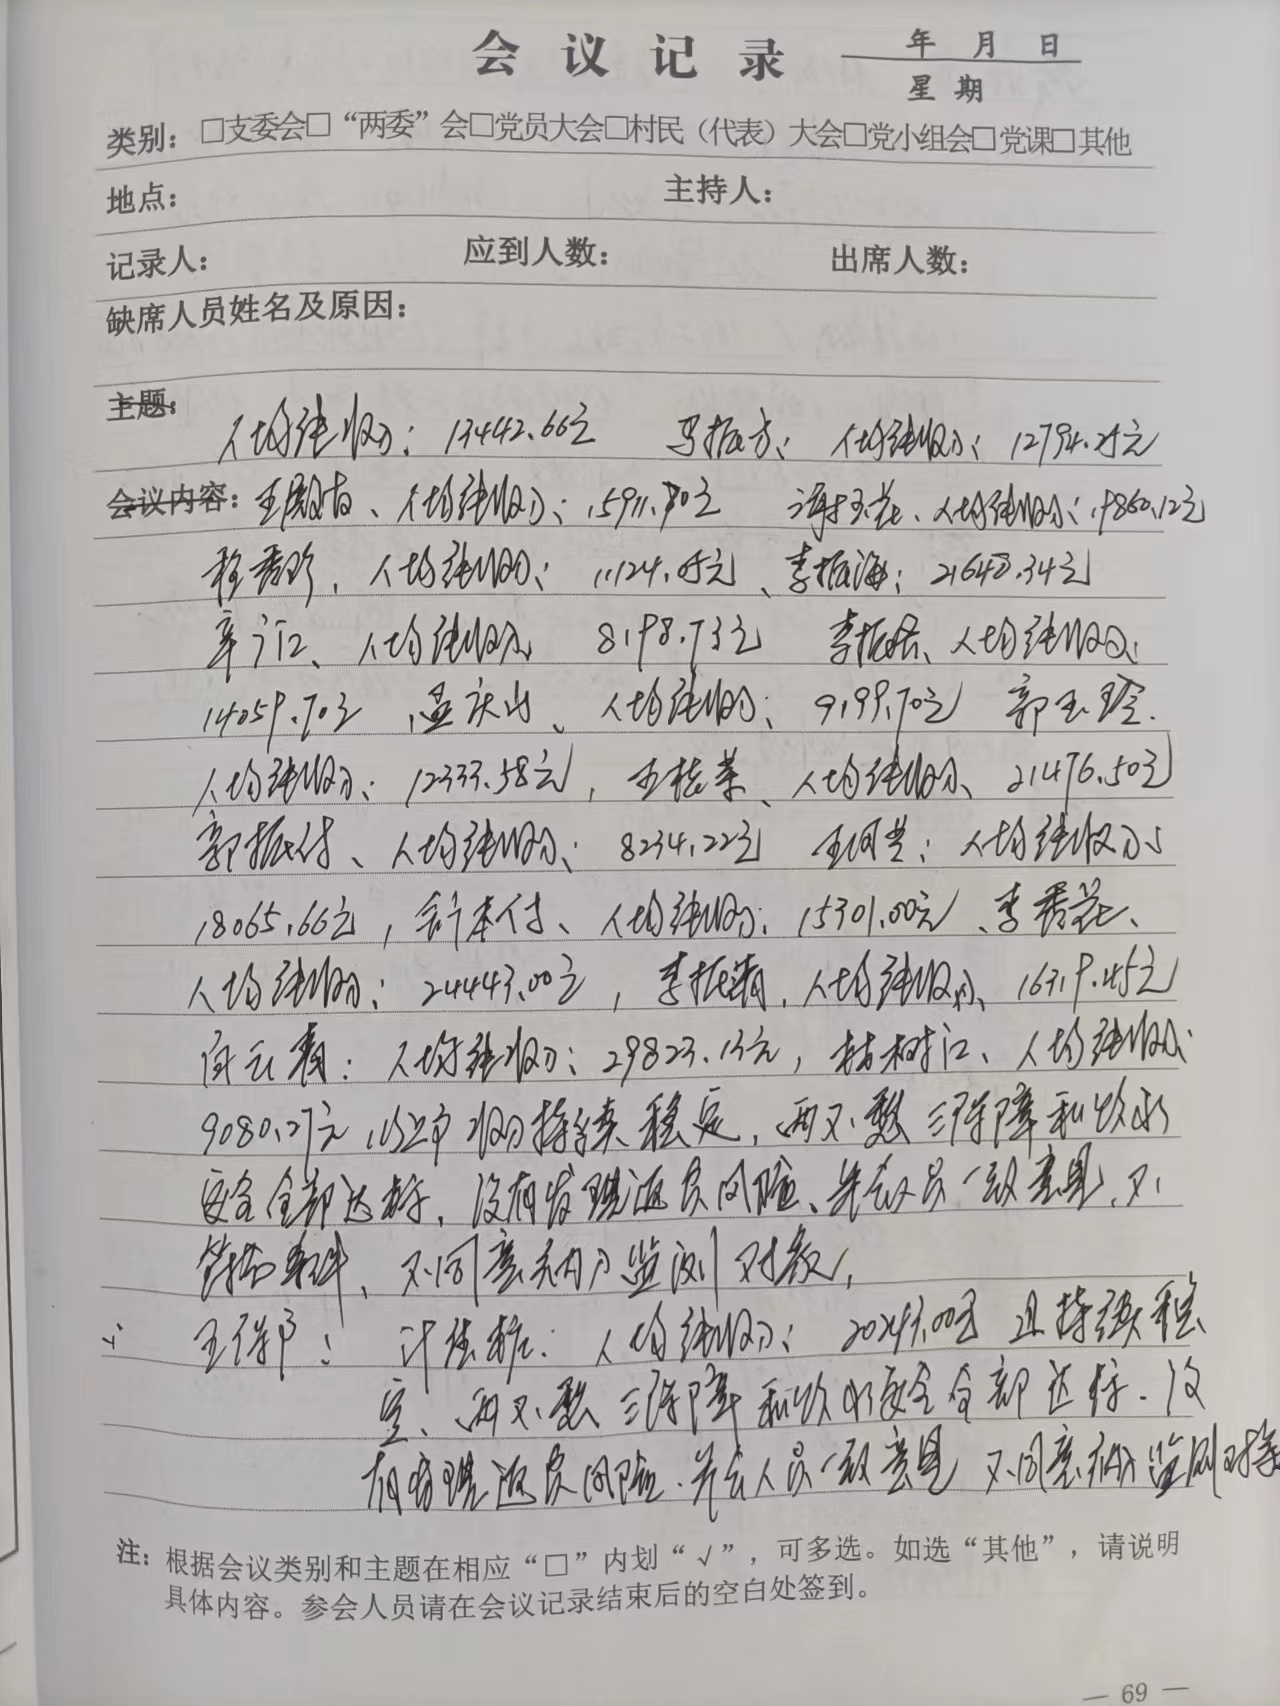 会议记录 年 月 日
星期
类别：□支委会□“两委”会□党员大会□村民（代表）大会□党小组会□党课□其他
地点： 主持人：
记录人： 应到人数： 出席人数：
缺席人员姓名及原因：
主题：
人均纯收入：13442.66元 马振方：人均纯收入：12794.25元
会议内容：王殿友、人均纯收入：15911.70元 谢玉花、人均纯收入：19860.12元
程秀珍，人均纯收入：11124.05元、李振海：21648.34元
辛广江、人均纯收入 8198.73元 李振居、人均纯收入：
14059.70元，孟庆山、人均纯收入：9199.70元 郭玉玲.
人均纯收入：12333.58元，王桂荣、人均纯收入、21476.50元
郭振付、人均纯收入：8234.22元 王何兰：人均纯收入：
18065.66元，本付、人均纯收入：15301.00元、李秀花、
人均纯收入：24443.00元，李振满，人均纯收入、16319.45元
云：人均纯收入：29823.13元，林树江、人均纯收入：
9080.27元，以上户收入持续稳定，两不愁三保障和饮水
安全全部达标，没有发现返贫风险、参会人员一致意见，不
符合条件，不同意纳入监测对象，
王保户： 计桂：人均纯收入：20243.00元 且持续稳
定、两不愁三保障和饮水安全全部达标.没
有发现返贫风险.参会人员一致意见 不同意纳入监测对象
注：根据会议类别和主题在相应“□”内划“√”，可多选。如选“其他”，请说明
具体内容。参会人员请在会议记录结束后的空白处签到。
— 69 —